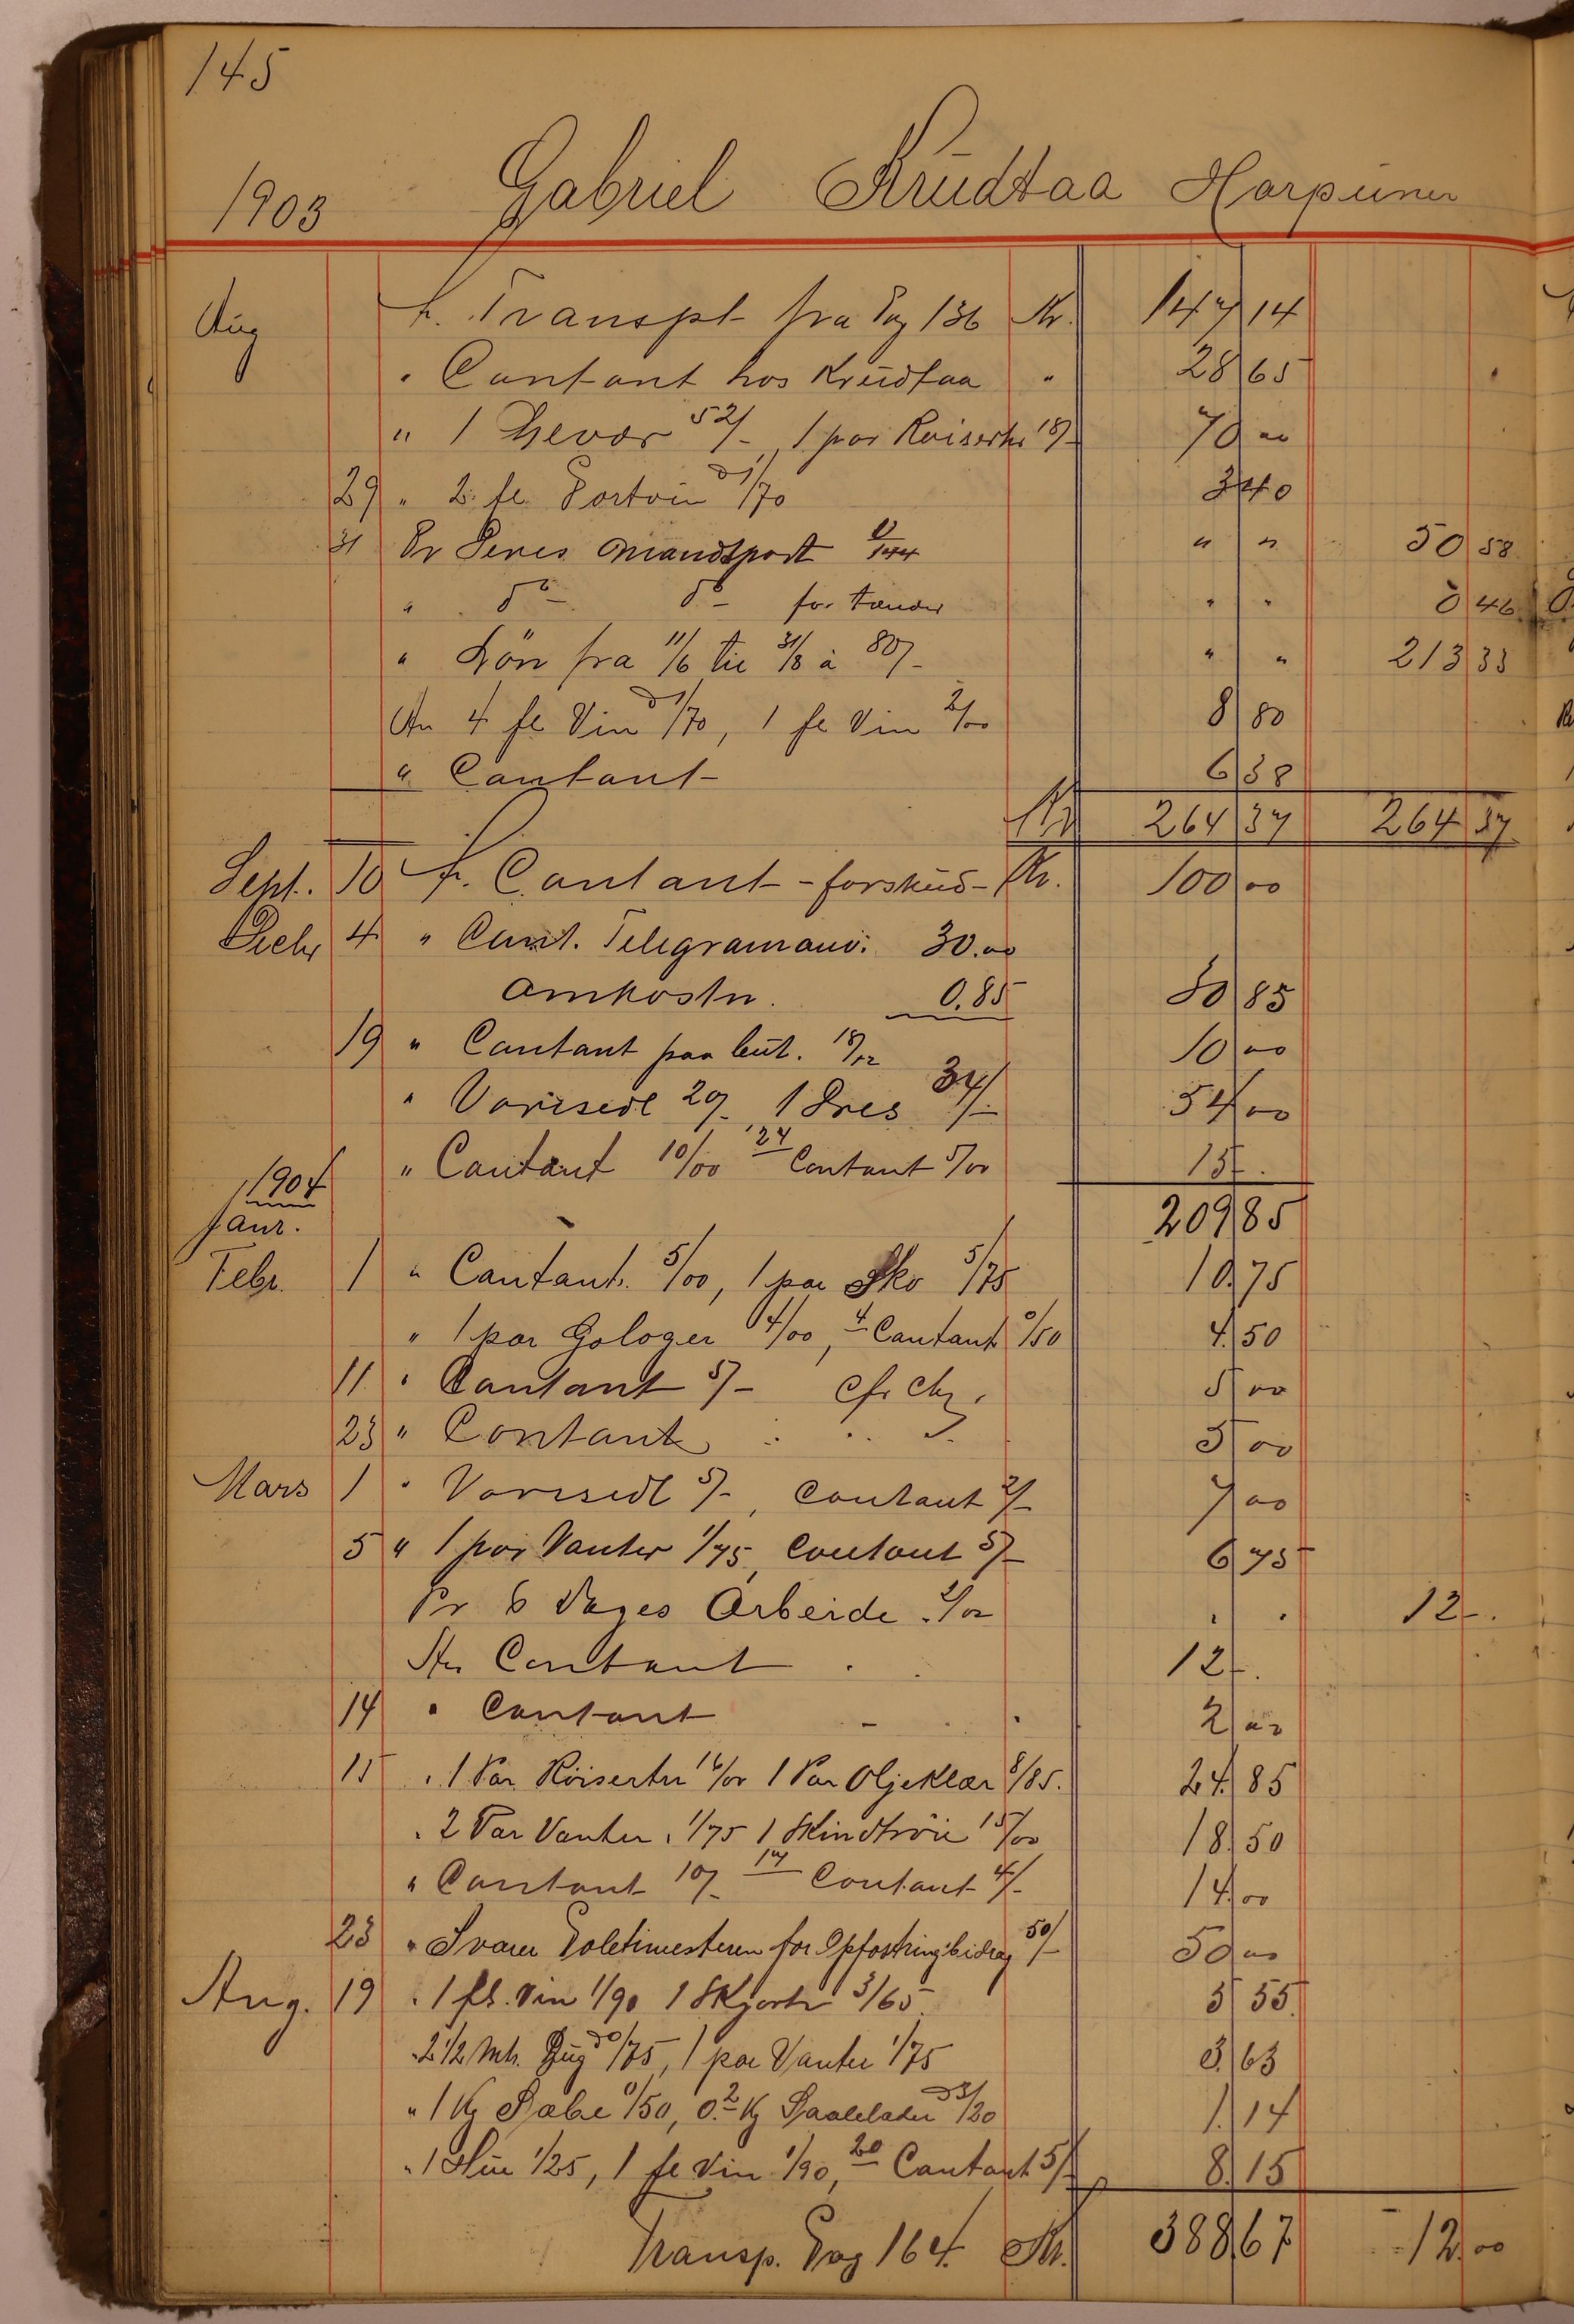 145
1903 Gabriel Krudtaa Harpuner
Aug An Transpt fra Pag 136 Kr. 147 14
" Contant hos Krudtaa " 28 65
" 1 Gevær 52/- 1 par Röisertr 18/- 70 00
29 " 2 fl Portvin à 1/70 3 40
31 Pr Deres Mandtspart " " 50 58
" do do for tænder " " 0 46
" Lön fra 11/6 til 31/8 à 80/- " " 213 33
An 4 fl Vin à 1/70, 1 fl Vin 2/00 8 80
" Contant 6 38
Kr 264 37 264 37
Sept. 10 An Contant - forskud - Kr. 100 00
Decbr 4 " Cont. Telegramanv: 30.00
Omkostn. 0.85 30 85
19 " Contant paa beut. 18/12 10 00
" Varesedl 20/- 1 Dres 34/- 54 00
" Contant 10/00 24 Contant 5/00 15 -
1904
Janr. 209 85
Febr. 1 " Contant 5/00, 1 par Sko 5/75 10.75
" 1 par Galoger 4/00, 4 Contant 0/50 4.50
11 " Contant 5/- 5 00
23 " Contant 5 00
Mars 1 " Varesedl 5/-, Contant 2/- 7 00
5 " 1 par Vanter 1/75, Contant 5/- 6 75
Pr 6 Dages Arbeide 2/00 " " 12 -
An Contant 12 -
14 " Contant 2 00
15 " 1 Par Röiserter 16/00 1 Par Oljeklær 8/85. 24.85
" 2 Par Vanter 1/75 1 Skindtröie 15/00 18.50
" Contant 10/- 17 Contant 4/- 14.00
23 " Svaren Politimesteren for Opfostringsbidrag 50/- 50 00
Aug. 19 " 1 fl. Vin 1/90 1 Skjorte 3/65 5 55
" 2 1/2 Mtr. Tüg à 0/75, 1 par Vanter 1/75 3.63
" 1 Kg Sæbe 0/50, 0.2 Kg Saalelæder à 3/20 1.14
" 1 Hüe 1/25, 1 fl Vin 1/90, 20 Contant 5/- 8.15
Transp. Pag 164. Kr. 388.67 12.00